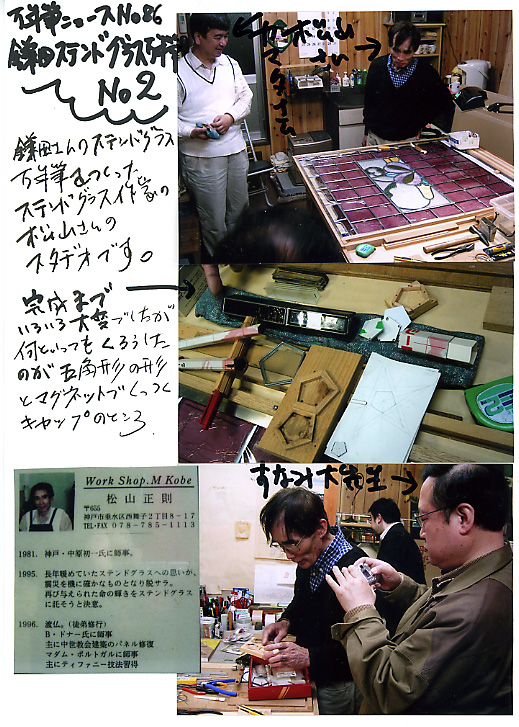 万年筆ニュースNo86
鎌田ステンドグラス万年筆
No2
鎌田さんのステンドグラス
万年筆をつくった
ステンドグラス作家の
松山さんの
スタヂオです。
完成まで
いろいろ大変でしたが
何といってもくろうした
のが五角形の形
とマグネットでくっつく
キャップのところ
松山
さん
すなみ大先生
Work Shop.M Kobe
松山正則
〒655
神戸市垂水区西舞子2丁目8-17
TEL・FAX 078-785-1113
1981. 神戸・中原初一氏に師事。
1995. 長年暖めていたステンドグラスへの思いが、
震災を機に確かなものとなり脱サラ。
再び与えられた命の輝きをステンドグラス
に託そうと決意。
1996. 渡仏。(徒弟修行)
B・ドナー氏に師事
主に中世教会建築のパネル修復
マダム・ポルトガルに師事
主にティファニー技法習得